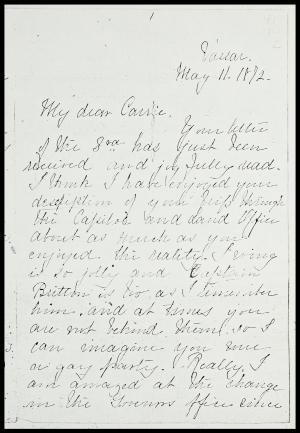 1
Vassar.
May 11. 1872.
My dear Carrie.
Your letter
of the 3rd has just been
received and joyfully read.
I think I have enjoyed your
description of your trip through
the Capitol and Land Office
about as much as you
enjoyed the reality. Irving
is so jolly and Captain
Britton is too as I remember
him, and at times you
are not behind them, so I
can imagine you were
a gay party. Really I
am amazed at the change
in the Govenors office since